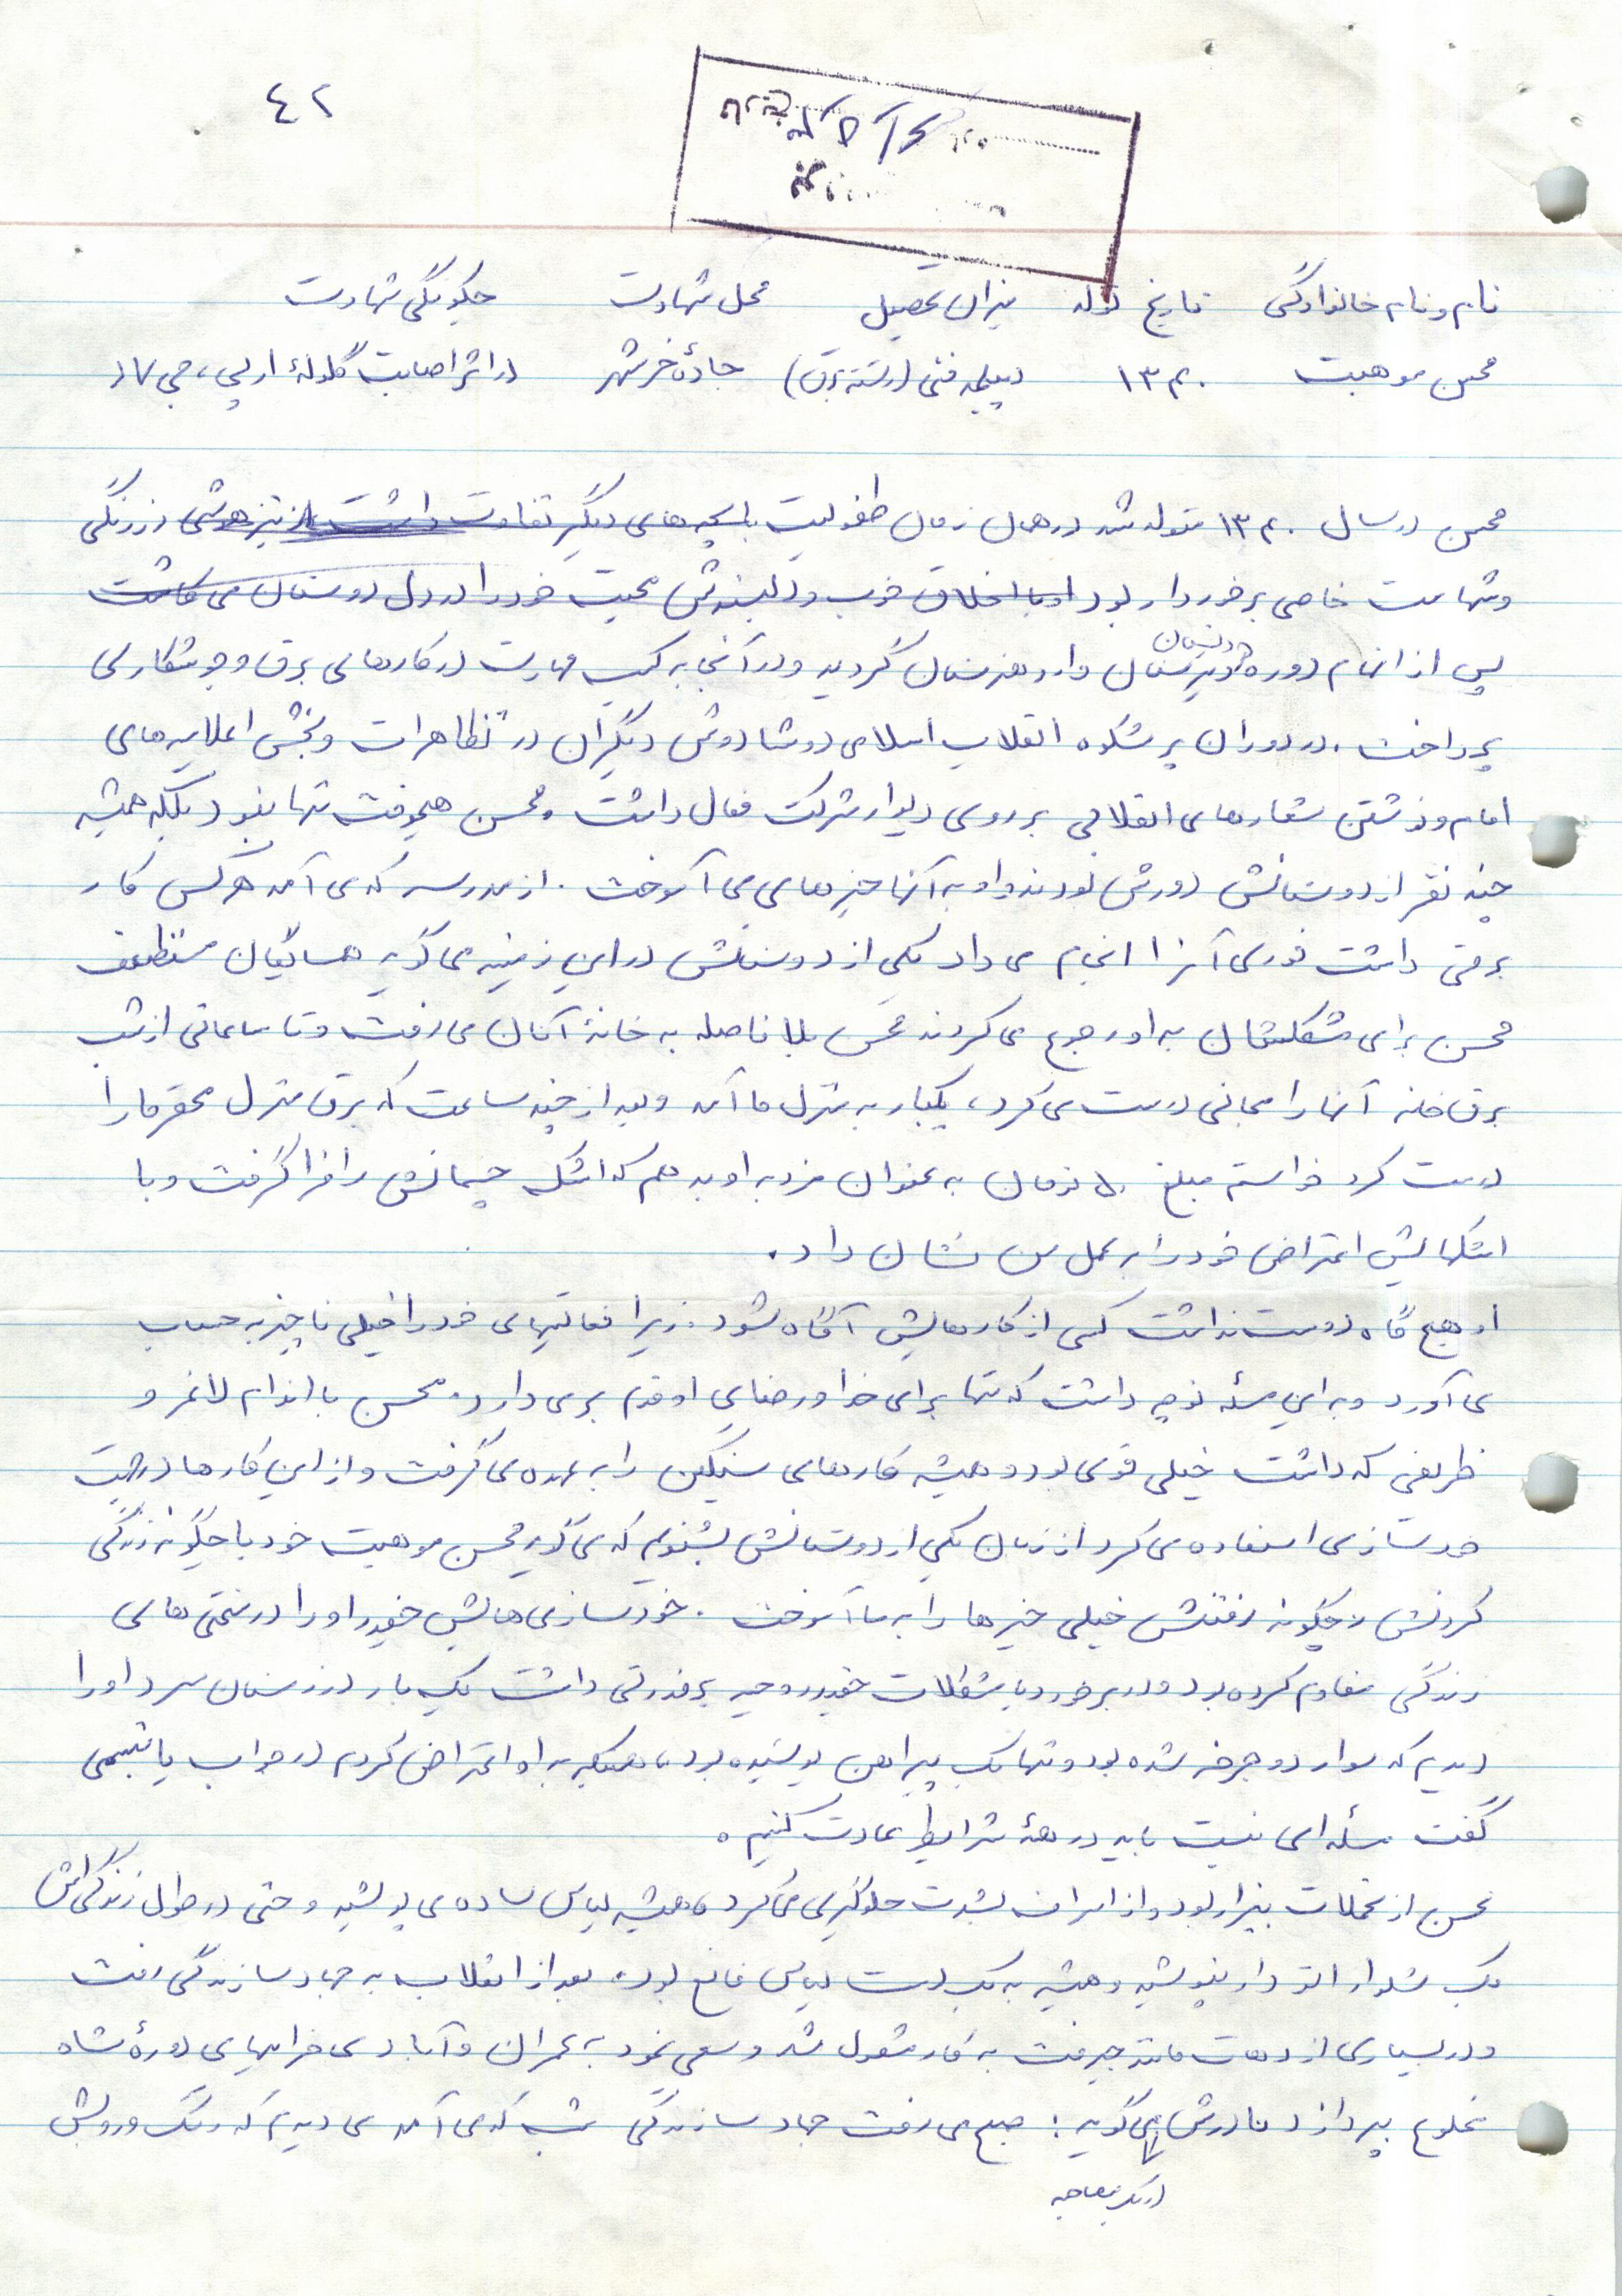 ۴۲
نام و نام خانوادگی تاریخ تولد میزان تحصیل محل شهادت چگونگی شهادت
محسن موهبت ۱۳۴۰ دیپلمه فنی (رشته برق) جاده خرمشهر در اثر اصابت گلولهٔ آرپی، جی ۷
محسن در سال ۱۳۴۰ متولد شد در همان زمان طفولیت با بچه های دیگر تفاوت داشت از تیزهوشی و زرنگی
و شهامت خاصی برخوردار بود او با اخلاق خوب و دلپسندش محبت خود را در دل دوستان می کاشت
پس از اتمام دوره دبستان وارد هنرستان گردید و در آنجا به کسب مهارت در کارهای برق و جوشکاری
پرداخت. در دوران پرشکوه انقلاب اسلامی دوشادوش دیگران در تظاهرات و پخش اعلامیه های
امام و نوشتن شعارهای انقلابی بر روی دیوار شرکت فعال داشت. محسن هیچوقت تنها نبود بلکه همیشه
چند نفر از دوستانش دورش بودند و او به آنها چیزهایی می آموخت. از مدرسه که می آمد هر کس کار
برقی داشت فوری آنرا انجام می داد یکی از دوستانش در این زمینه می گوید همسایگان مستضعف
محسن برای مشکلشان به او رجوع می کردند محسن بلافاصله به خانهٔ آنان می رفت و تا ساعاتی از شب
برق خانه آنها را مجانی درست می کرد، یکبار به منزل ما آمد و بعد از چند ساعت که برق منزل محقر ما را
درست کرد خواستم مبلغ ۵۰ تومان به عنوان مزد به او بدهم که اشک چشمانش را فرا گرفت و با
اشکهایش اعتراض خود را به عمل من نشان داد.
او هیچ گاه دوست نداشت کسی از کارهایش آگاه شود. زیرا فعالیتهای خود را خیلی ناچیز به حساب
می آورد و به این مسئله توجه داشت که تنها برای خدا و رضای او قدم بر می دارد. محسن با اندام لاغر و
ظریفی که داشت خیلی قوی بود و همیشه کارهای سنگین را به عهده می گرفت و از این کارها در جهت
خودسازی استفاده می کرد از زبان یکی از دوستانش بشنویم که می گوید محسن موهبت خود با چگونه زندگی
کردنش و چگونه رفتنش خیلی چیزها را به ما آموخت. خودسازی هایش او را در سختی های
زندگی مقاوم کرده بود و در برخورد با مشکلات روحیه پرقدرتی داشت یک بار در زمستان سرد او را
دیدیم که سوار دوچرخه شده بود و تنها یک پیراهن پوشیده بود، هنگامیکه به او اعتراض کردم در جواب با تبسمی
گفت مسئله ای نیست باید در همهٔ شرایط عادت کنیم.
محسن از تجملات بیزار بود و از اسراف بشدت جلوگیری می کرد همیشه لباس ساده می پوشید و حتی در طول زندگی اش
یک شلوار اتو دار نپوشید و همیشه به یک دست لباس قانع بود. بعد از انقلاب به جهاد سازندگی رفت
و در بسیاری از دهات مانند جیرفت به کار مشغول شد و سعی نمود به عمران و آبادی خرابیهای دورهٔ شاه
مخلوع بپردازد مادرش می گوید: صبح می رفت جهاد سازندگی شب که می آمد می دیدیم که رنگ و رویش
در یک مصاحبه